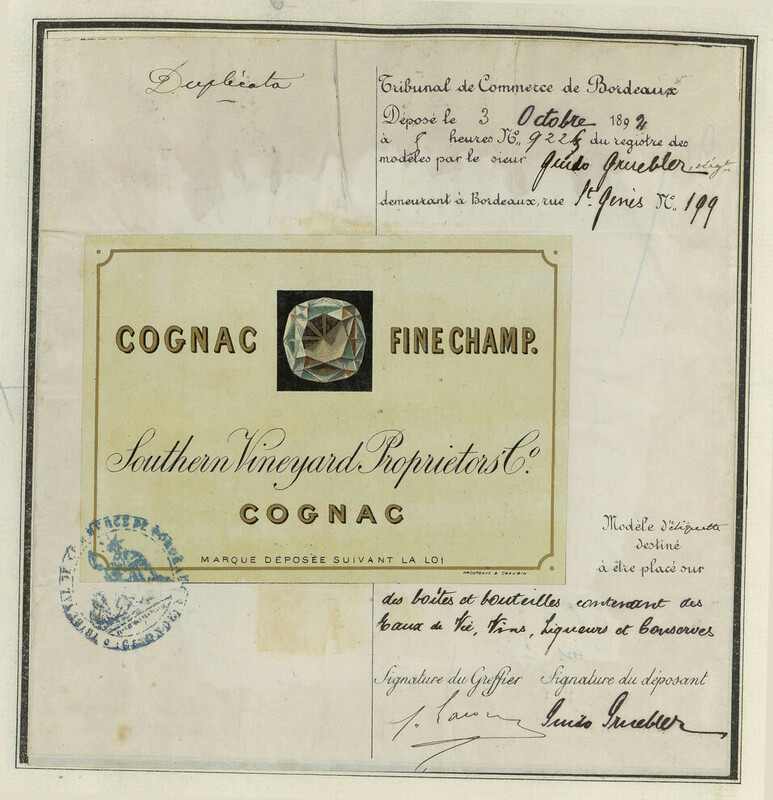 Duplicata
Tribunal de Commerce de Bordeaux
Déposé le 3 Octobre 189
à heures Nº 922 du registre des
modèles par le sieur Guido Gruebler, négt
demeurant à Bordeaux, rue St Genès Nº 199
COGNAC FINE CHAMP.
Southern Vineyard Proprietors Cº.
COGNAC
MARQUE DÉPOSÉE SUIVANT LA LOI
PROUTEAUX & CHAMBIN
Modèle d'étiquette
destiné
à être placé sur
des boîtes et bouteilles contenant des
Eaux de Vie, Vins, Liqueurs et Conserves
Signature du Greffier Signature du déposant
Guido Gruebler
TRIBUNAL DE COMMERCE DE BORDEAUX